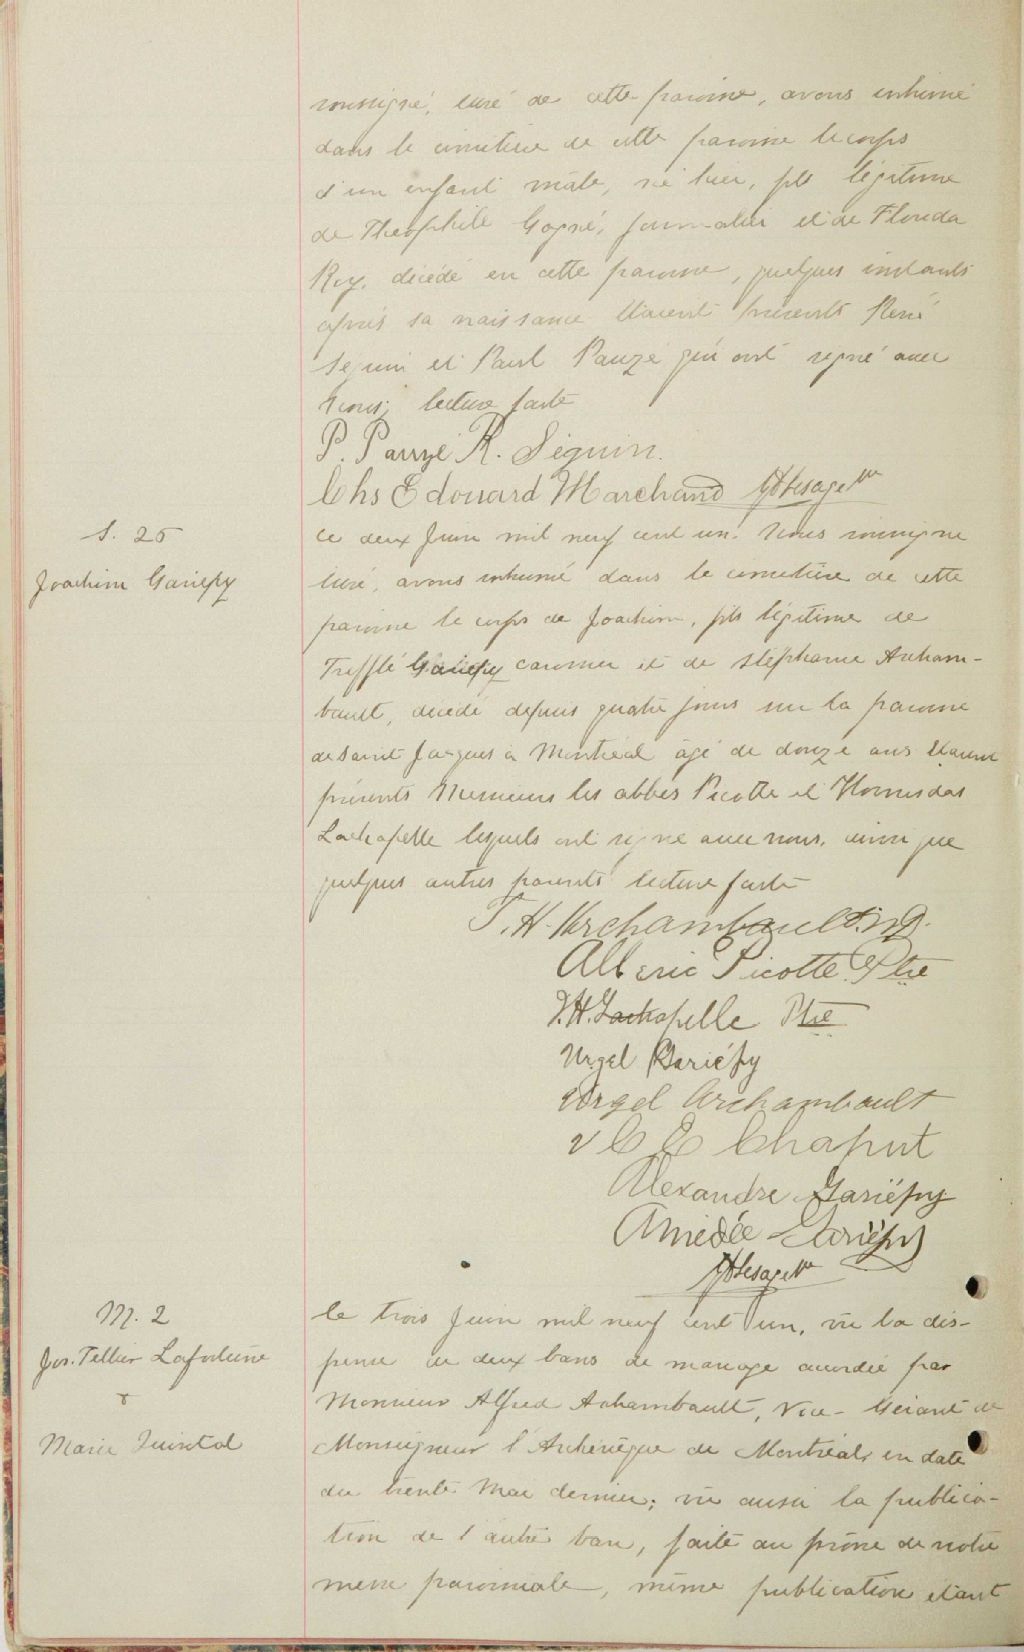 soussigné, curé de cette paroisse, avons inhumé
dans le cimetière de cette paroisse le corps
d'un enfant mâle, né hier, fils légitime
de Théophile Gagné, journalier et de Florida
Roy, décédé en cette paroisse, quelques instants
après sa naissance. Etaient présents René
Seguin et Paul Pauzé qui ont signé avec
nous; lecture faite
P. Pauzé R. Séguin.
Chs Edouard Marchand Lesage
S. 25
Joachim Gariépy
Ce deux Juin mil neuf cent un. Nous soussigné
curé, avons inhumé dans le cimetière de cette
paroisse le corps de Joachim, fils légitime de
Trefflé Gariépy carossier et de Stéphanie Archam-
bault, décédé depuis quatre jours sur la paroisse
de Saint Jacques à Montréal âgé de douze ans Etaient
présents Messieurs les abbés Picotte et Hormisdas
Lachapelle lesquels ont signé avec nous, ainsi que
quelques autres parents lecture faite
T. H. Archambault
Albéric Picotte Ptre
J. H. Lachapelle Ptre
Urgel Gariépy
Urgel Archambault
C E Chaput
Alexandre Gariépy
Amédée Gariépy
Lesage
M. 2
Jos. Tellier Lafortune
&
Marie Quintal
le trois Juin mil neuf cent un, vu la dis-
pense de deux bans de mariage accordée par
Monsieur Alfred Archambault, Vice-Gérant de
Monseigneur l'Archevêque de Montréal, en date
du trente Mai dernier; vu aussi la publica-
tion de l'autre ban, faite au prône de notre
messe paroissiale, même publication étant